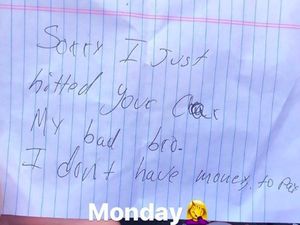 Sorry I Just
hitted your Car
My bad bro.
I dont have money. to Pay
Monday 🤦‍♀️